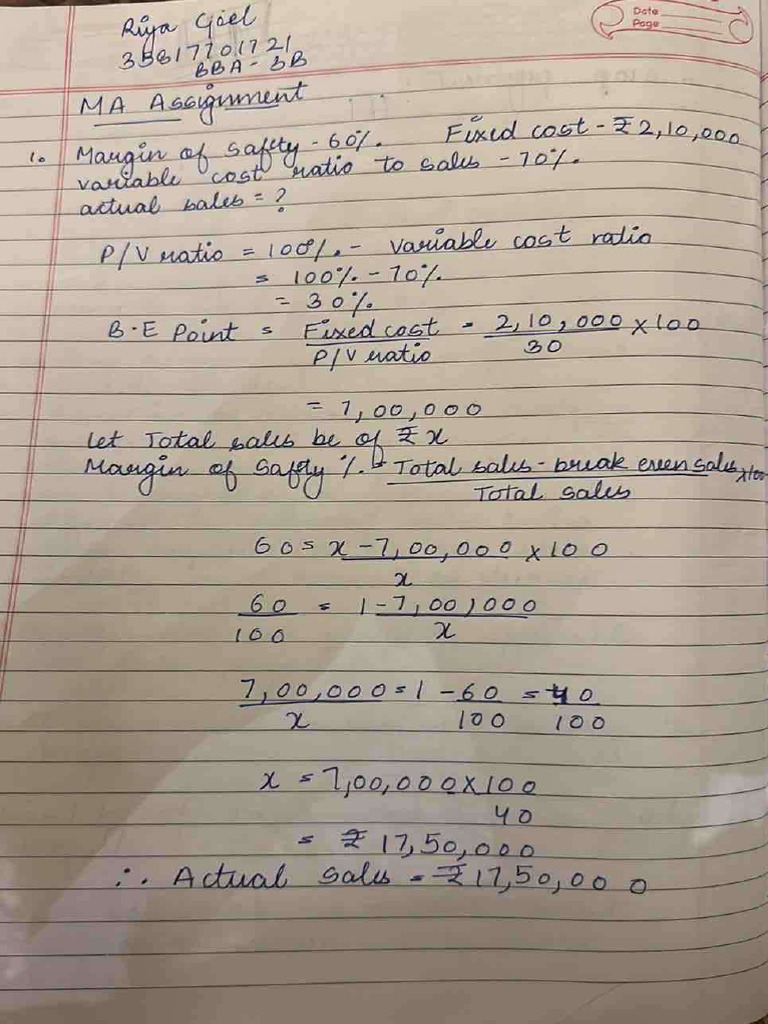 Riya Goel
Date
Page
35817701721
BBA - 3B
MA Assignment
1. Margin of safety - 60%. Fixed cost - ₹ 2,10,000
variable cost ratio to sales - 70%.
actual sales = ?
P/V ratio = 100% - variable cost ratio
= 100% - 70%
= 30%
B.E Point = Fixed cost / P/V ratio = 2,10,000 / 30 × 100
= 7,00,000
Let Total sales be of ₹ x
Margin of Safety % = Total sales - break even sales / Total sales × 100
60 = x - 7,00,000 / x × 100
60 / 100 = 1 - 7,00,000 / x
7,00,000 / x = 1 - 60 / 100 = 40 / 100
x = 7,00,000 × 100 / 40
= ₹ 17,50,000
∴ Actual sales = ₹ 17,50,000